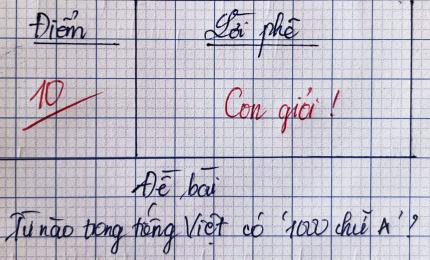 Điểm
Lời phê
10
Con giỏi !
Đề bài
Từ nào trong tiếng Việt có '1000 chữ A' ?